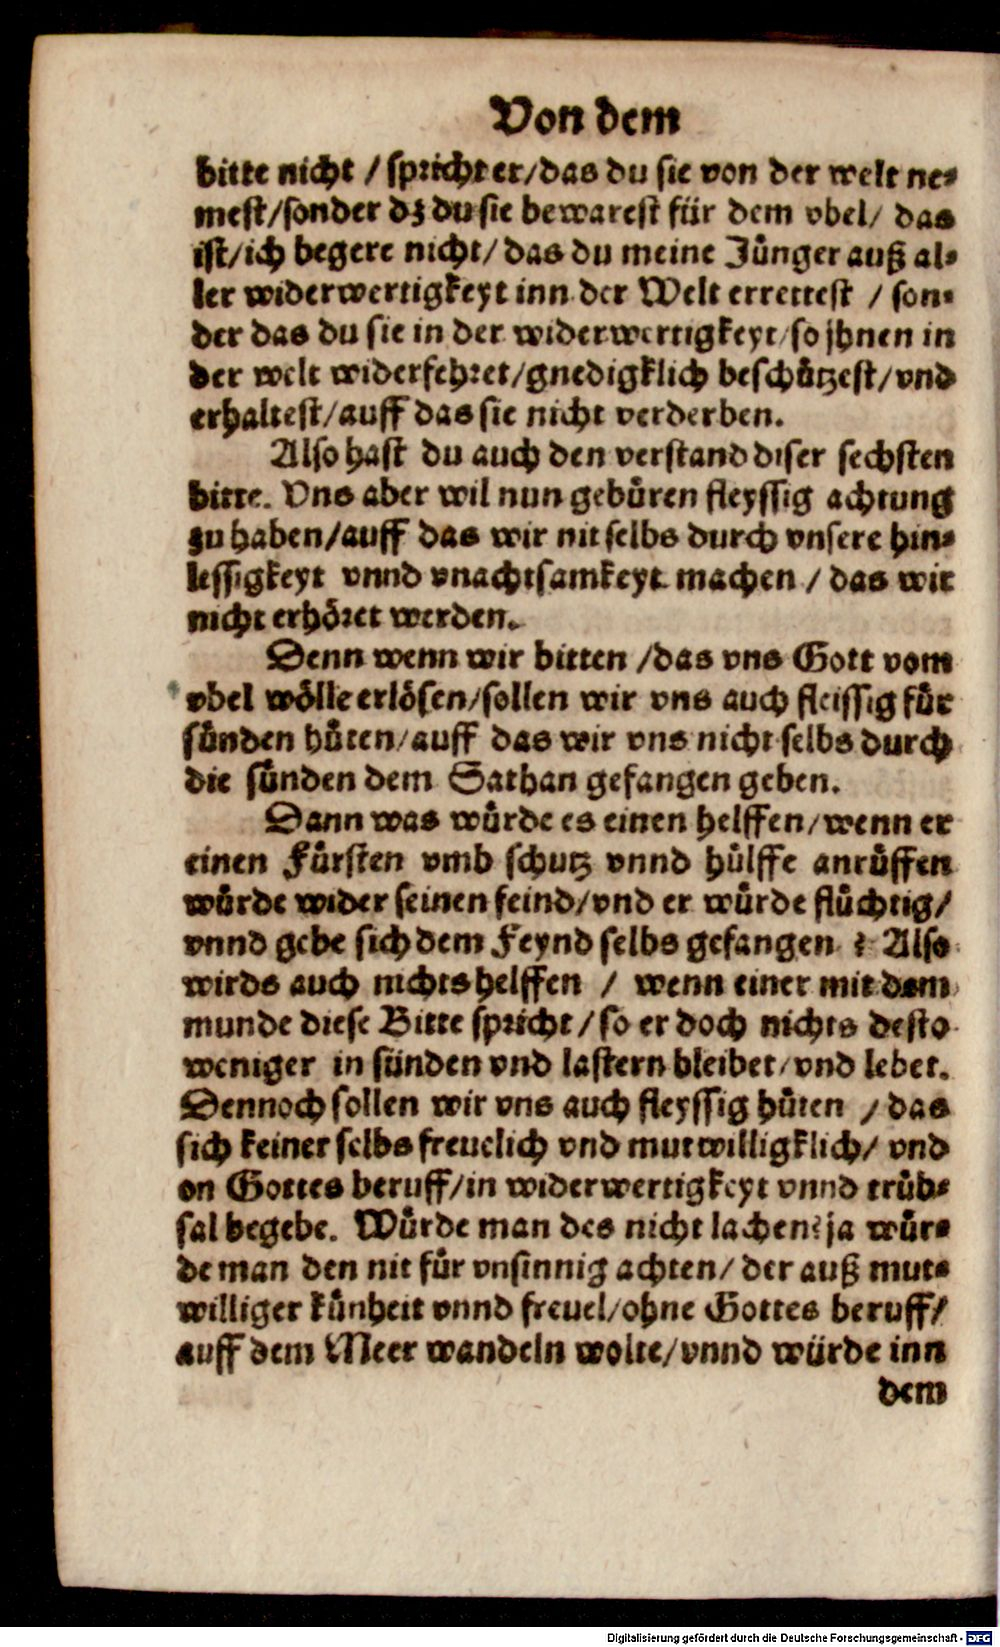 Von dem
bitte nicht / spricht er/das du sie von der welt ne-
mest/sonder dz du sie bewarest für dem vbel/ das
ist/ich begere nicht/ das du meine Jünger auß al-
ler widerwertigkeyt inn der Welt errettest / son-
der das du sie in der widerwertigkeyt/so jhnen in
der welt widerfehret/gnedigklich beschützest/vnd
erhaltest/auff das sie nicht verderben.
Also hast du auch den verstand diser sechsten
bitte. Vns aber wil nun gebüren fleyssig achtung
zu haben/auff das wir nit selbs durch vnsere hin-
lessigkeyt vnnd vnachtsamkeyt machen / das wir
nicht erhöret werden.
Denn wenn wir bitten /das vns Gott vom
vbel wölle erlösen/sollen wir vns auch fleissig für
sünden hüten/auff das wir vns nicht selbs durch
die sünden dem Sathan gefangen geben.
Dann was würde es einen helffen/wenn er
einen Fürsten vmb schutz vnnd hülffe anrüffen
würde wider seinen feind/vnd er würde flüchtig/
vnnd gebe sich dem Feynd selbs gefangen ? Also
wirds auch nichts helffen / wenn einer mit dem
munde diese Bitte spricht / so er doch nichts desto
weniger in sünden vnd lastern bleibet/vnd lebet.
Dennoch sollen wir vns auch fleyssig hüten / das
sich keiner selbs freuelich vnd mutwilligklich/ vnd
on Gottes beruff/in widerwertigkeyt vnnd trüb-
sal begebe. Würde man des nicht lachen?ja wür-
de man den nit für vnsinnig achten/ der auß mut-
williger künheit vnnd freuel/ohne Gottes beruff/
auff dem Meer wandeln wolte/vnnd würde inn
dem
Digitalisierung gefördert durch die Deutsche Forschungsgemeinschaft - DFG